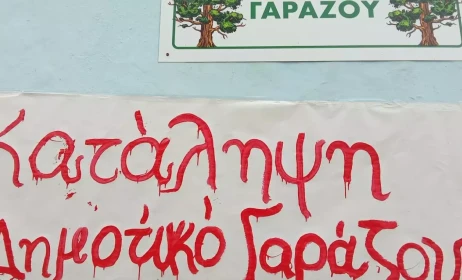 ΓΑΡΑΖΟΥ
Κατάληψη
Δημοτικό Γαράζου